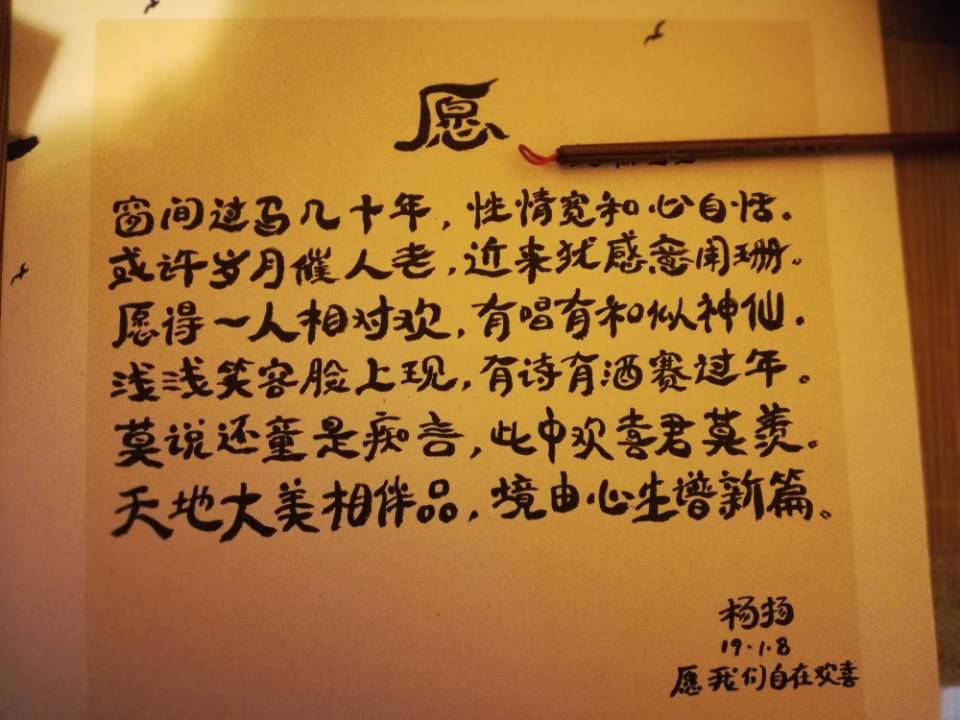 愿
窗间过马几十年，性情宽和心自恬。
或许岁月催人老，近来犹感意阑珊。
愿得一人相对欢，有唱有和似神仙。
浅浅笑容脸上现，有诗有酒赛过年。
莫说还童是痴言，此中欢喜君莫羡。
天地大美相伴品，境由心生谱新篇。
杨扬
19.1.8
愿我们自在欢喜